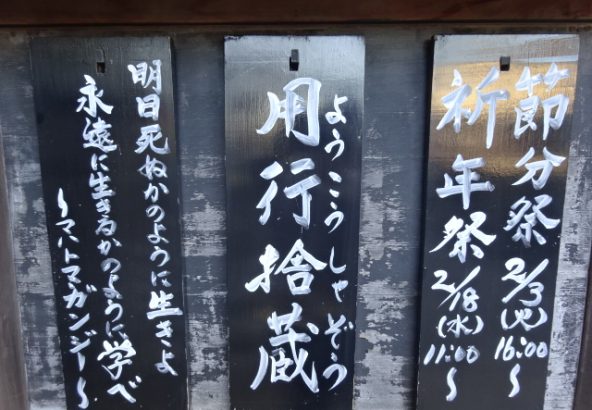 節分祭 2/3(火) 16:00〜
祈年祭 2/18(水) 11:00〜
用行捨蔵
ようこうしゃぞう
明日死ぬかのように生きよ
永遠に生きるかのように学べ
〜マハトマガンジー〜